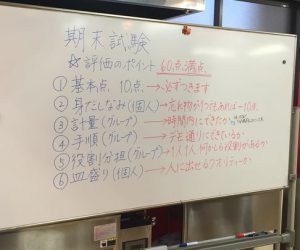 期末試験
☆評価のポイント 60点満点
① 基本点 10点 → 必ずつきます
② 身だしなみ(個人) → 危ない物が1つでもあれば-10点
③ 計量(グループ) → 時間内にできたか
④ 手順(グループ) → デモ通りにできているか
⑤ 役割分担(グループ) → 1人1人何かしら役割があるか
⑥ 皿盛り(個人) → 人に出せるクオリティーか